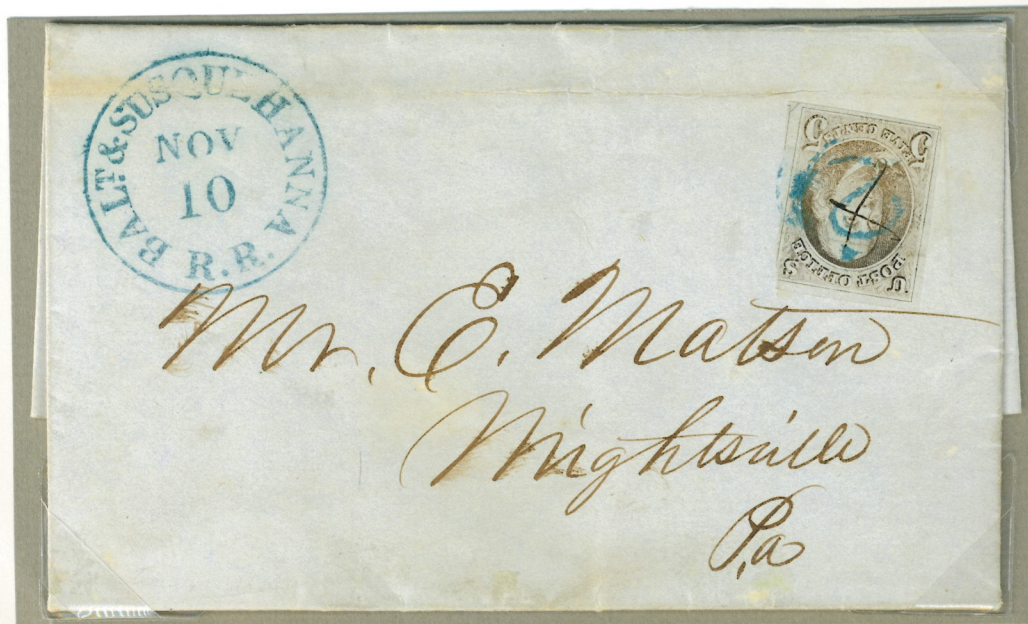 BALT. & SUSQUEHANNA R.R.
NOV
10
U POST OFFICE S
5 FIVE CENTS 5
Mr. E. Matson
Wrightsville
Pa